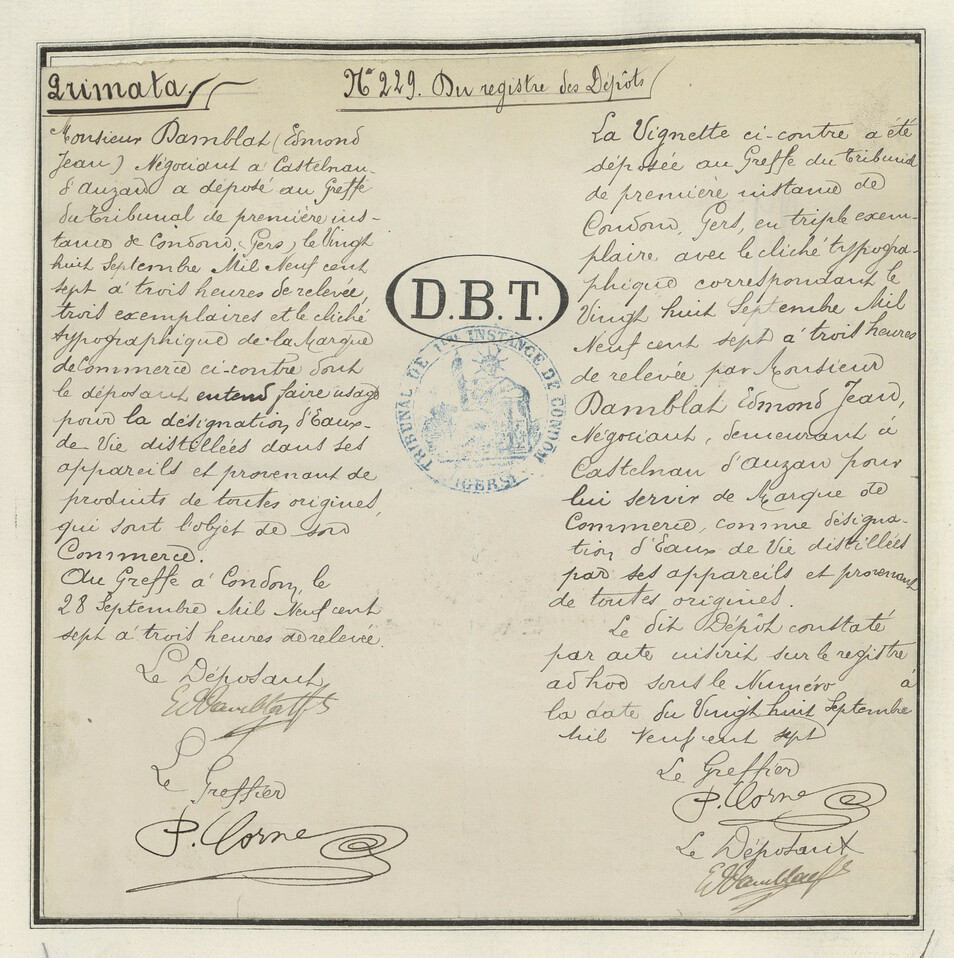 Primata
N° 229. Du registre des Dépôts
Monsieur Damblat (Edmond
Jean) Négociant à Castelnau-
d'Auzan a déposé au Greffe
du Tribunal de première ins-
tance de Condom, (Gers) le Vingt
huit Septembre Mil Neuf cent
sept à trois heures de relevée,
trois exemplaires et le cliché
typographique de la Marque
de Commerce ci-contre dont
le déposant entend faire usage
pour la désignation d'Eaux-
de Vie distillées dans ses
appareils et provenant de
produits de toutes origines,
qui sont l'objet de son
Commerce.
Au Greffe à Condom, le
28 Septembre Mil Neuf cent
sept à trois heures de relevée.
Le Déposant
EDamblat fs
Le Greffier
P. Corne
D.B.T.
TRIBUNAL DE 1RE INSTANCE DE CONDOM
(GERS)
La Vignette ci-contre a été
déposée au Greffe du tribunal
de première instance de
Condom, Gers, en triple exem-
plaire avec le cliché typogra-
phique correspondant le
Vingt huit Septembre Mil
Neuf cent sept à trois heures
de relevée par Monsieur
Damblat Edmond Jean,
Négociant, demeurant à
Castelnau d'Auzan pour
lui servir de Marque de
Commerce, comme désigna-
tion d'Eaux de Vie distillées
par ses appareils et provenant
de toutes origines.
Le dit Dépôt constaté
par acte inscrit sur le registre
ad hoc sous le Numéro à
la date du Vingt huit Septembre
Mil Neuf cent sept
Le Greffier
P. Corne
Le Déposant
EDamblat fs